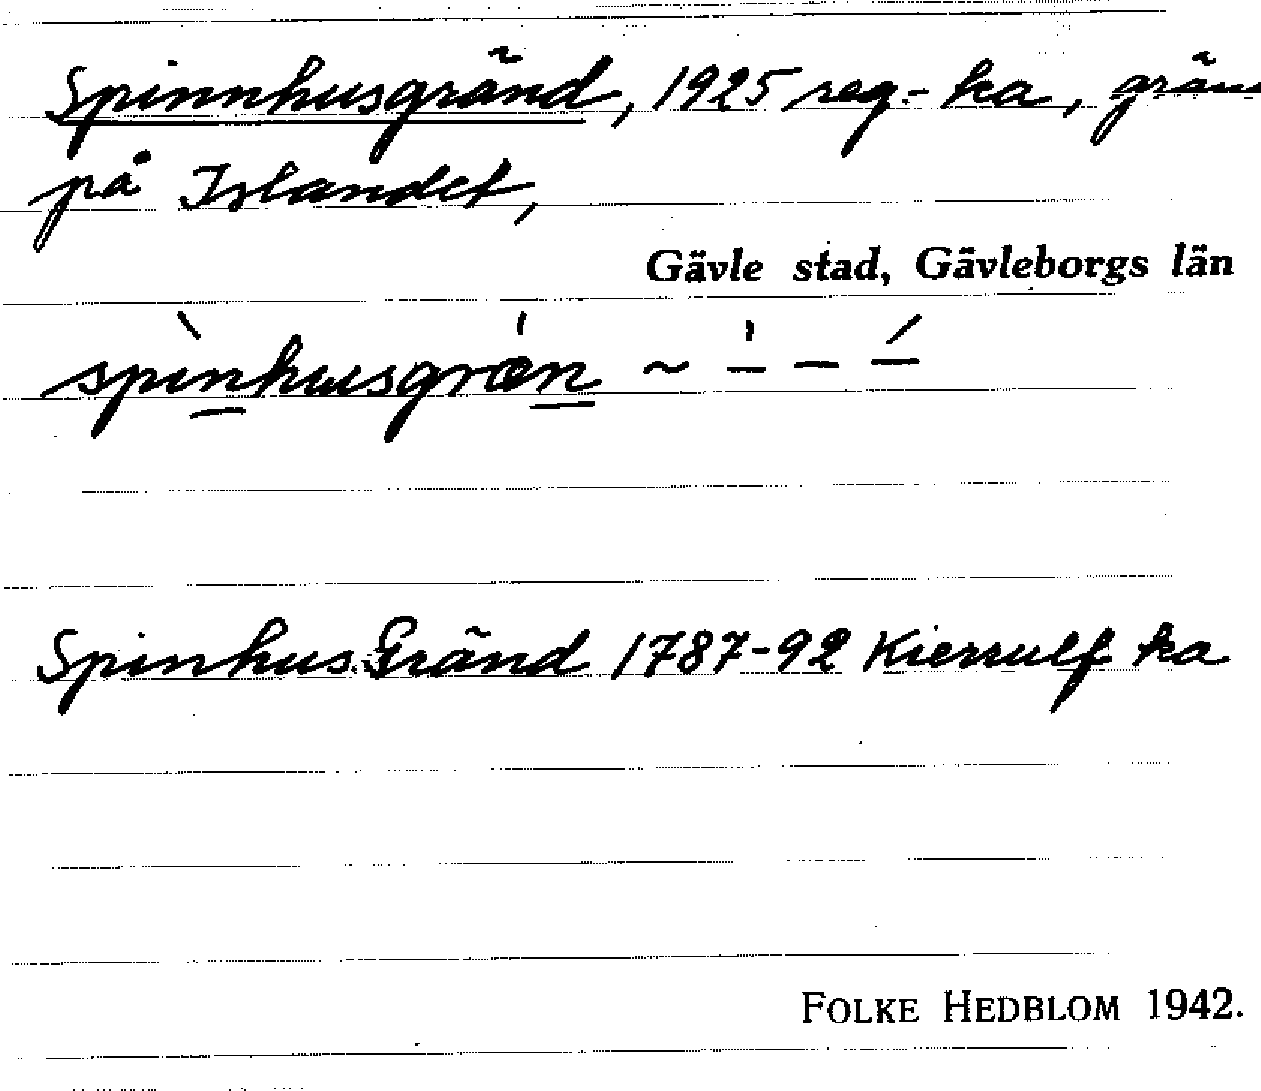 Spinnhusgränd, 1925 reg.-ka, grän
på Islandet,
Gävle stad, Gävleborgs län
spìnhusgræn ~ – – –
SpinhusGränd 1787-92 Kierrulf ka
FOLKE HEDBLOM 1942.